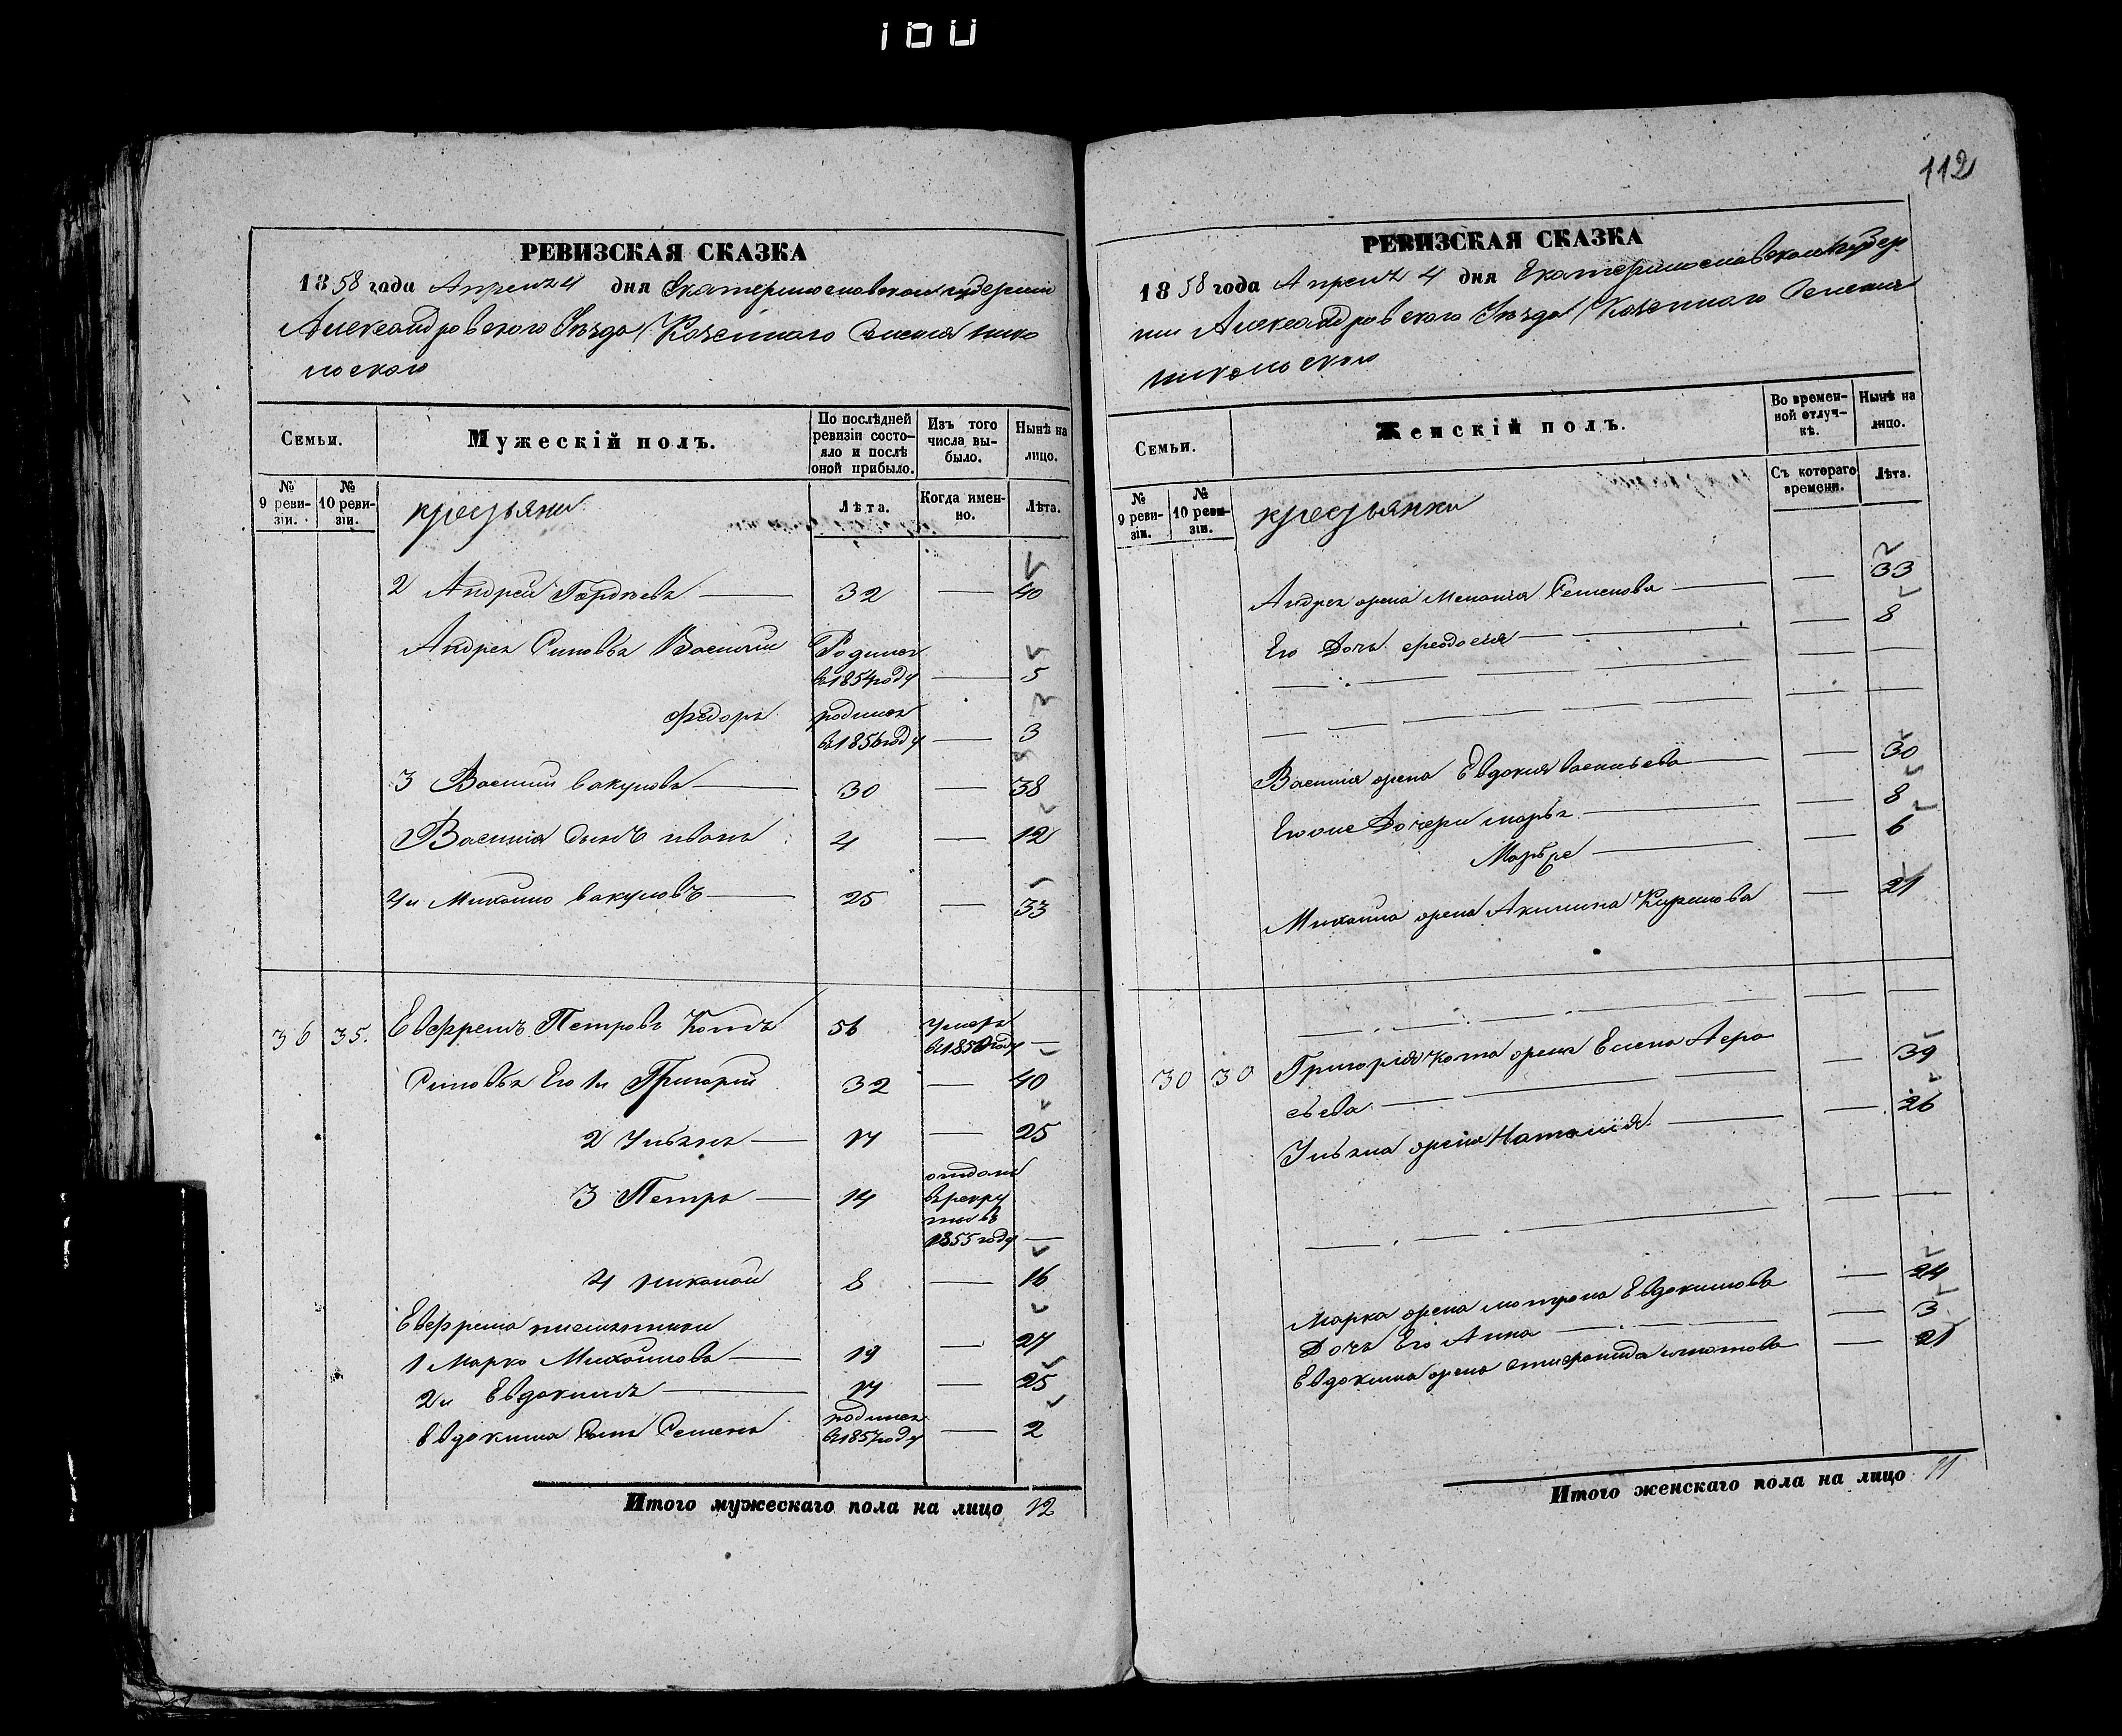 100
РЕВИЗСКАЯ СКАЗКА
1858 года Апреля 4 дня Екатеринославской губернии
Александровского Уезда Казенного Селения Нико
льского
Семьи.
Мужескій полъ.
По послѣдней ревизіи состояло и послѣ оной прибыло.
Изъ того числа выбыло.
Нынѣ на лицо.
№ 9 ревизіи.
№ 10 ревизіи.
крестьяне
Лѣта.
Когда именно.
Лѣта.
2 Андрей Гордѣевъ — 32 — 40
Андрея Сыновья Василий Родился
въ 1854 году — 5
Федоръ родился
въ 1856 году — 3
3 Василий Вакуловъ — 30 — 38
Василия Сынъ Иванъ 4 — 12
4й Михайло Вакуловъ — 25 — 33
36 35. Евфремъ Петровъ Котъ 56 умеръ
въ 1850 году —
Сыновья Его 1й Григорий 32 — 40
2 Ульянъ — 17 — 25
3 Петръ — 14 отданъ
в рекру
ты въ
1855 году —
4 Никомай 8 — 16
Евфрема племянники
1 Марко Михайлова — 19 — 27
2й Евдокимъ — 17 — 25
Евдокима Сынъ Семенъ родился
въ 1857 году — 2
Итого мужескаго пола на лицо 12
112
РЕВИЗСКАЯ СКАЗКА
1858 года Апреля 4 дня Екатеринославской Губер
нии Александровского Уезда Казенного Селения
Никольского
Семьи.
Женскій полъ.
Во временной отлучкѣ.
Нынѣ на лицо.
№ 9 ревизіи.
№ 10 ревизіи.
крестьянки
Съ котораго времени.
Лѣта.
Андрея жена Мелания Семенова — — 33
Его Дочь Феодосия — — 8
Василия жена Евдокия Васильева — — 30
Его же Дочери Марья — — 8
— — 6
Михайла жена Акилина Кирилова — 21
30 30 Григория Кота жена Елена Аера
сьева — — 39
Ульяна жена Наталия — — 26
Марка жена Мотрона Евдокимова — 24
Дочь Его Анна — — 3
Евдокима жена — 21
Итого женскаго пола на лицо 11